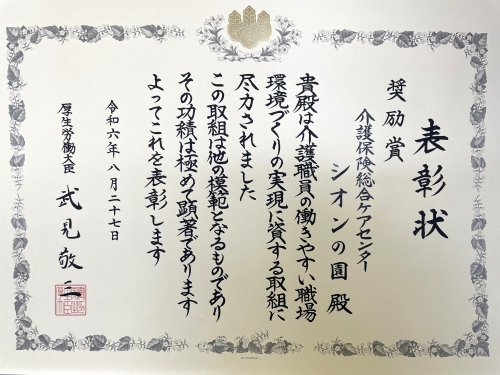 表彰状
奨励賞
介護保険総合ケアセンター
シオンの園殿
貴殿は介護職員の働きやすい職場
環境づくりの実現に資する取組に
尽力されました
この取組は他の模範となるものであり
その功績は極めて顕著であります
よってこれを表彰します
令和六年八月二十七日
厚生労働大臣 武見敬三